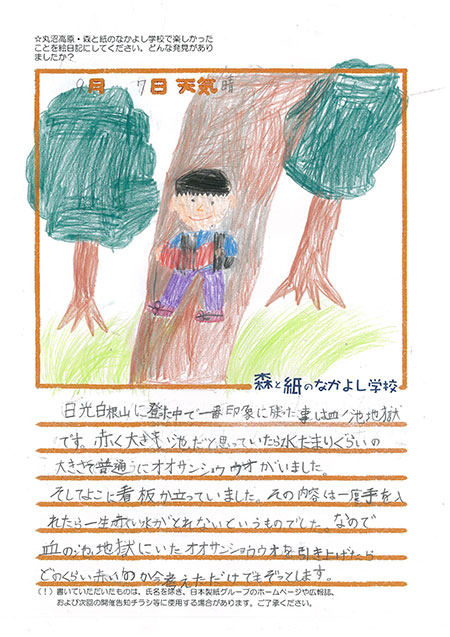 ☆丸沼高原・森と紙のなかよし学校で楽しかった
ことを絵日記にしてください。どんな発見があり
ましたか？
9月 7日 天気 晴
森と紙のなかよし学校
日光白根山に登た中で一番印象に残た事は血ノ池地獄
です。赤く大きい池だと思っていたら水たまりぐらいの
大きさで普通うにオオサンショウウオがいました。
そしてよこに看板が立っていました。その内容は一度手を入
れたら一生赤い水がとれないというものでした。なので
血の池地獄にいたオオサンショウウオを引き上げたら
どのくらい赤いのか考えただけでもぞっとします。
（！）書いていただいたものは、氏名を除き、日本製紙グループのホームページや広報誌、
および次回の開催告知チラシ等に使用する場合があります。ご了承ください。